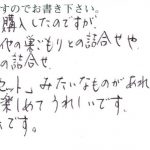 すのでお書き下さい。
購入したのですが、
他の巣ごもりとの詰合せや
の詰合せ
セット」みたいなものがあれ
楽しめてうれしいです。
です。